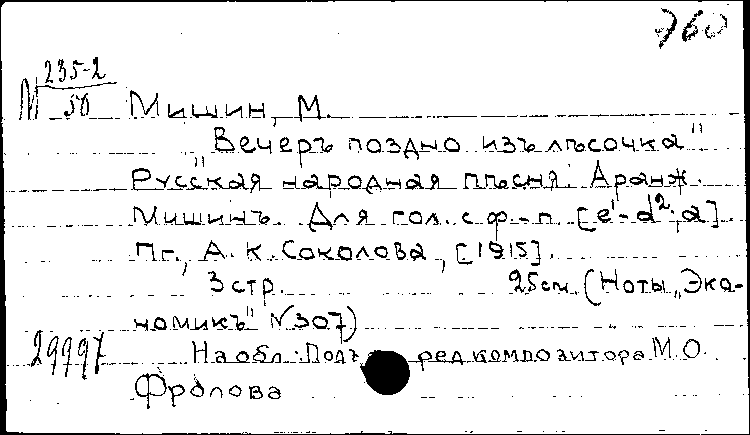 760
М 235-2
50
Мишин, М.
"Вечеръ поздно изъ лѣсочка"
Русская народная пѣсня. Аранж.
Мишинъ. Для гол. с ф.-п. [e¹-d²; a]
Пг., А. К. Соколова, [1915].
3 стр. 25 см. (Ноты „Эко-
номикъ" N 307)
На обл.: Подъ ред композитора М.О.
29997
Фролова